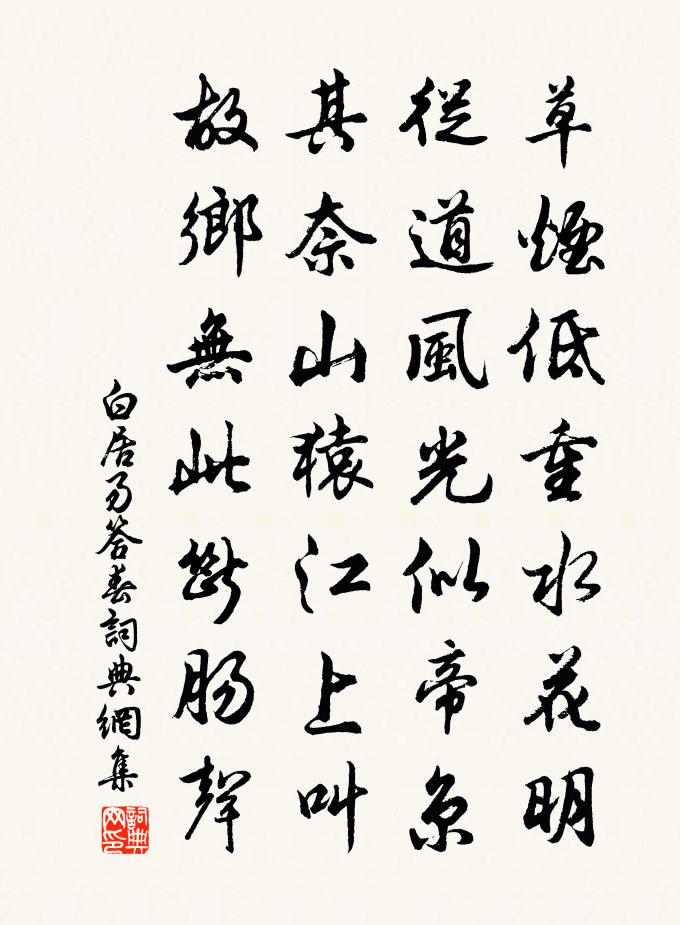 草煙低重水花明
從道風光似帝京
其奈山猿江上叫
故鄉無此斷腸聲
白居易答春詞典網集
詞典網印